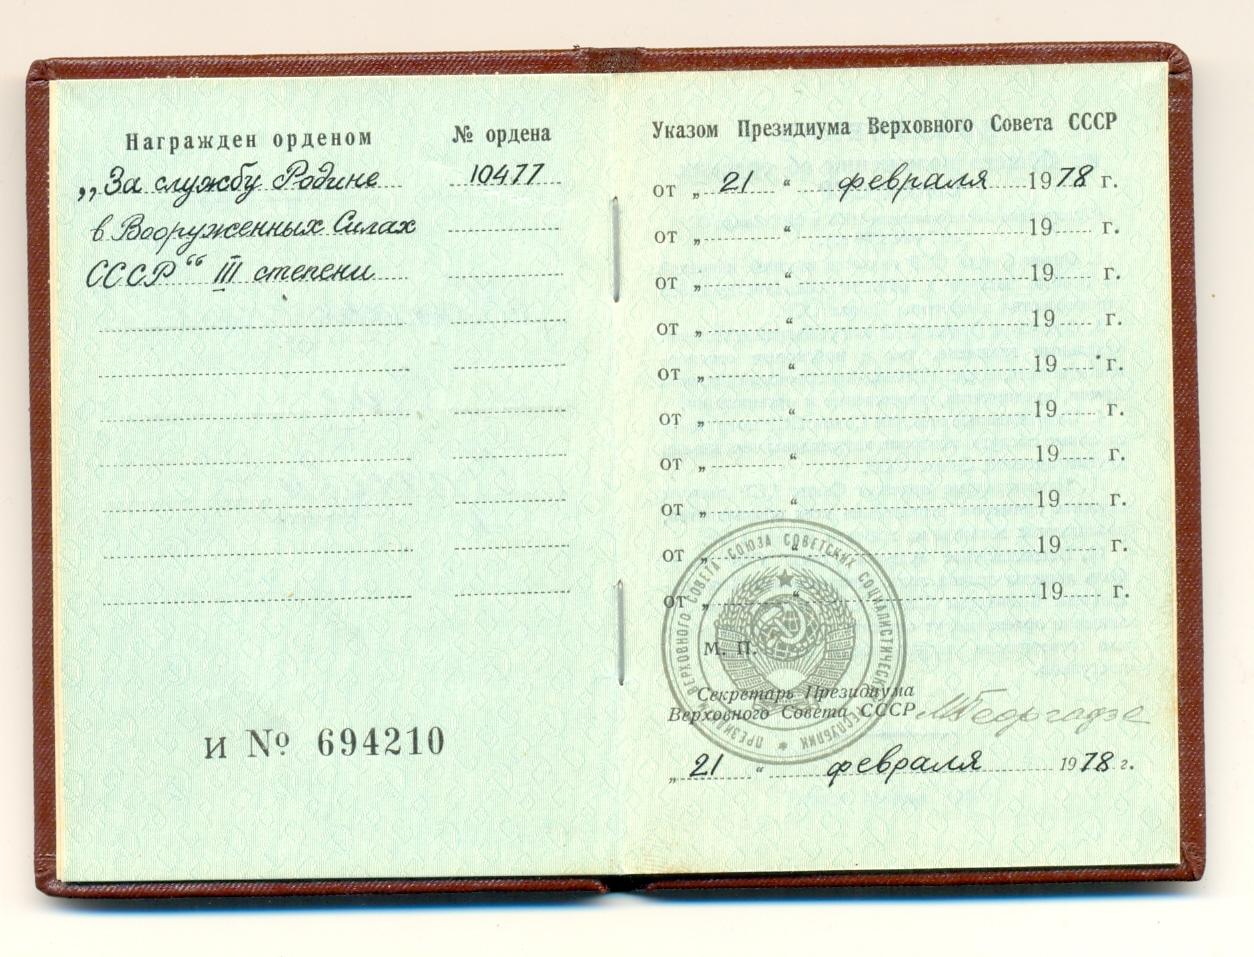 Награжден орденом № ордена
„За службу Родине 10477
в Вооруженных Силах
СССР“ III степени
и № 694210
Указом Президиума Верховного Совета СССР
от „ 21 “ февраля 1978 г.
от „ “ 19 г.
от „ “ 19 г.
от „ “ 19 г.
от „ “ 19 г.
от „ “ 19 г.
от „ “ 19 г.
от „ “ 19 г.
от „ “ 19 г.
от „ “ 19 г.
ПРЕЗИДИУМ ВЕРХОВНОГО СОВЕТА СОЮЗА СОВЕТСКИХ СОЦИАЛИСТИЧЕСКИХ РЕСПУБЛИК
М. П.
Секретарь Президиума
Верховного Совета СССР МГеоргадзе
„ 21 “ февраля 1978 г.